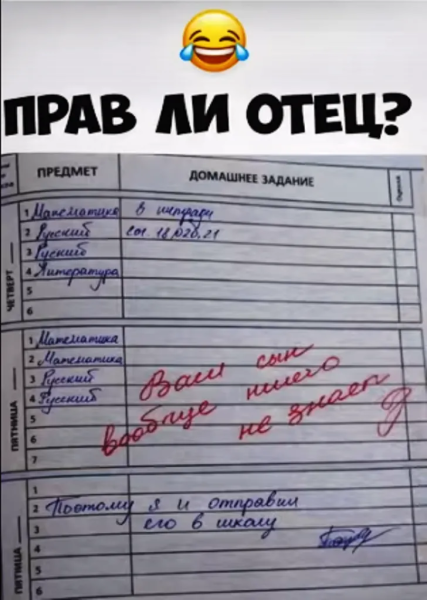 ПРАВ ЛИ ОТЕЦ?
ПРЕДМЕТ ДОМАШНЕЕ ЗАДАНИЕ
ЧЕТВЕРГ
1 Математика в тетради
2 Русский
3 Русский
4 Литература
5
6
ПЯТНИЦА
1 Математика
2 Математика
3 Русский
4 Русский
5
6
7
Ваш сын
вообще ничего
не знает
ПЯТНИЦА
1
2 Поэтому я и отправил
3 его в школу
4
5
6